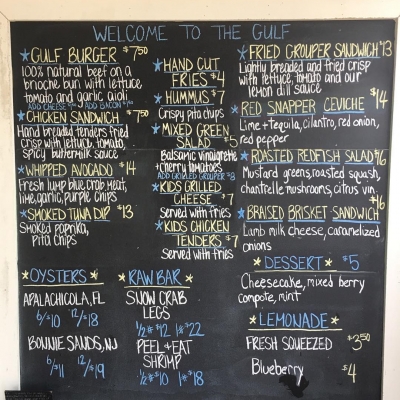 WELCOME TO THE GULF
GULF BURGER $7.50
100% natural beef on a
brioche bun with lettuce,
tomato and garlic aioli
ADD CHEESE
ADD BACON
CHICKEN SANDWICH $7.50
Hand breaded tenders fried
crisp with lettuce, tomato,
spicy buttermilk sauce
WHIPPED AVOCADO $14
Fresh lump blue crab meat,
lime, garlic, purple chips
SMOKED TUNA DIP $13
Smoked paprika,
pita chips
HAND CUT
FRIES $4
HUMMUS $7
Crispy pita chips
MIXED GREEN
SALAD $5
Balsamic vinaigrette
cherry tomatoes
ADD GRILLED GROUPER $8
KIDS GRILLED
CHEESE $7
Served with fries
KIDS CHICKEN
TENDERS $7
Served with fries
FRIED GROUPER SANDWICH $13
Lightly breaded and fried crisp
with lettuce, tomato and our
lemon dill sauce
RED SNAPPER CEVICHE $14
Lime + tequila, cilantro, red onion,
red pepper
ROASTED REDFISH SALAD $16
Mustard greens, roasted squash,
chantrelle mushrooms, citrus vin.
BRAISED BRISKET SANDWICH $16
Lamb milk cheese, caramelized
onions
OYSTERS
APALACHICOLA, FL
6/$10 12/$18
BONNIE SANDS, NJ
6/$11 12/$19
RAW BAR
SNOW CRAB
LEGS
1/2# $12 1# $22
PEEL + EAT
SHRIMP
1/2# $10 1# $18
DESSERT $5
Cheesecake, mixed berry
compote, mint
LEMONADE
FRESH SQUEEZED $3.50
Blueberry $4